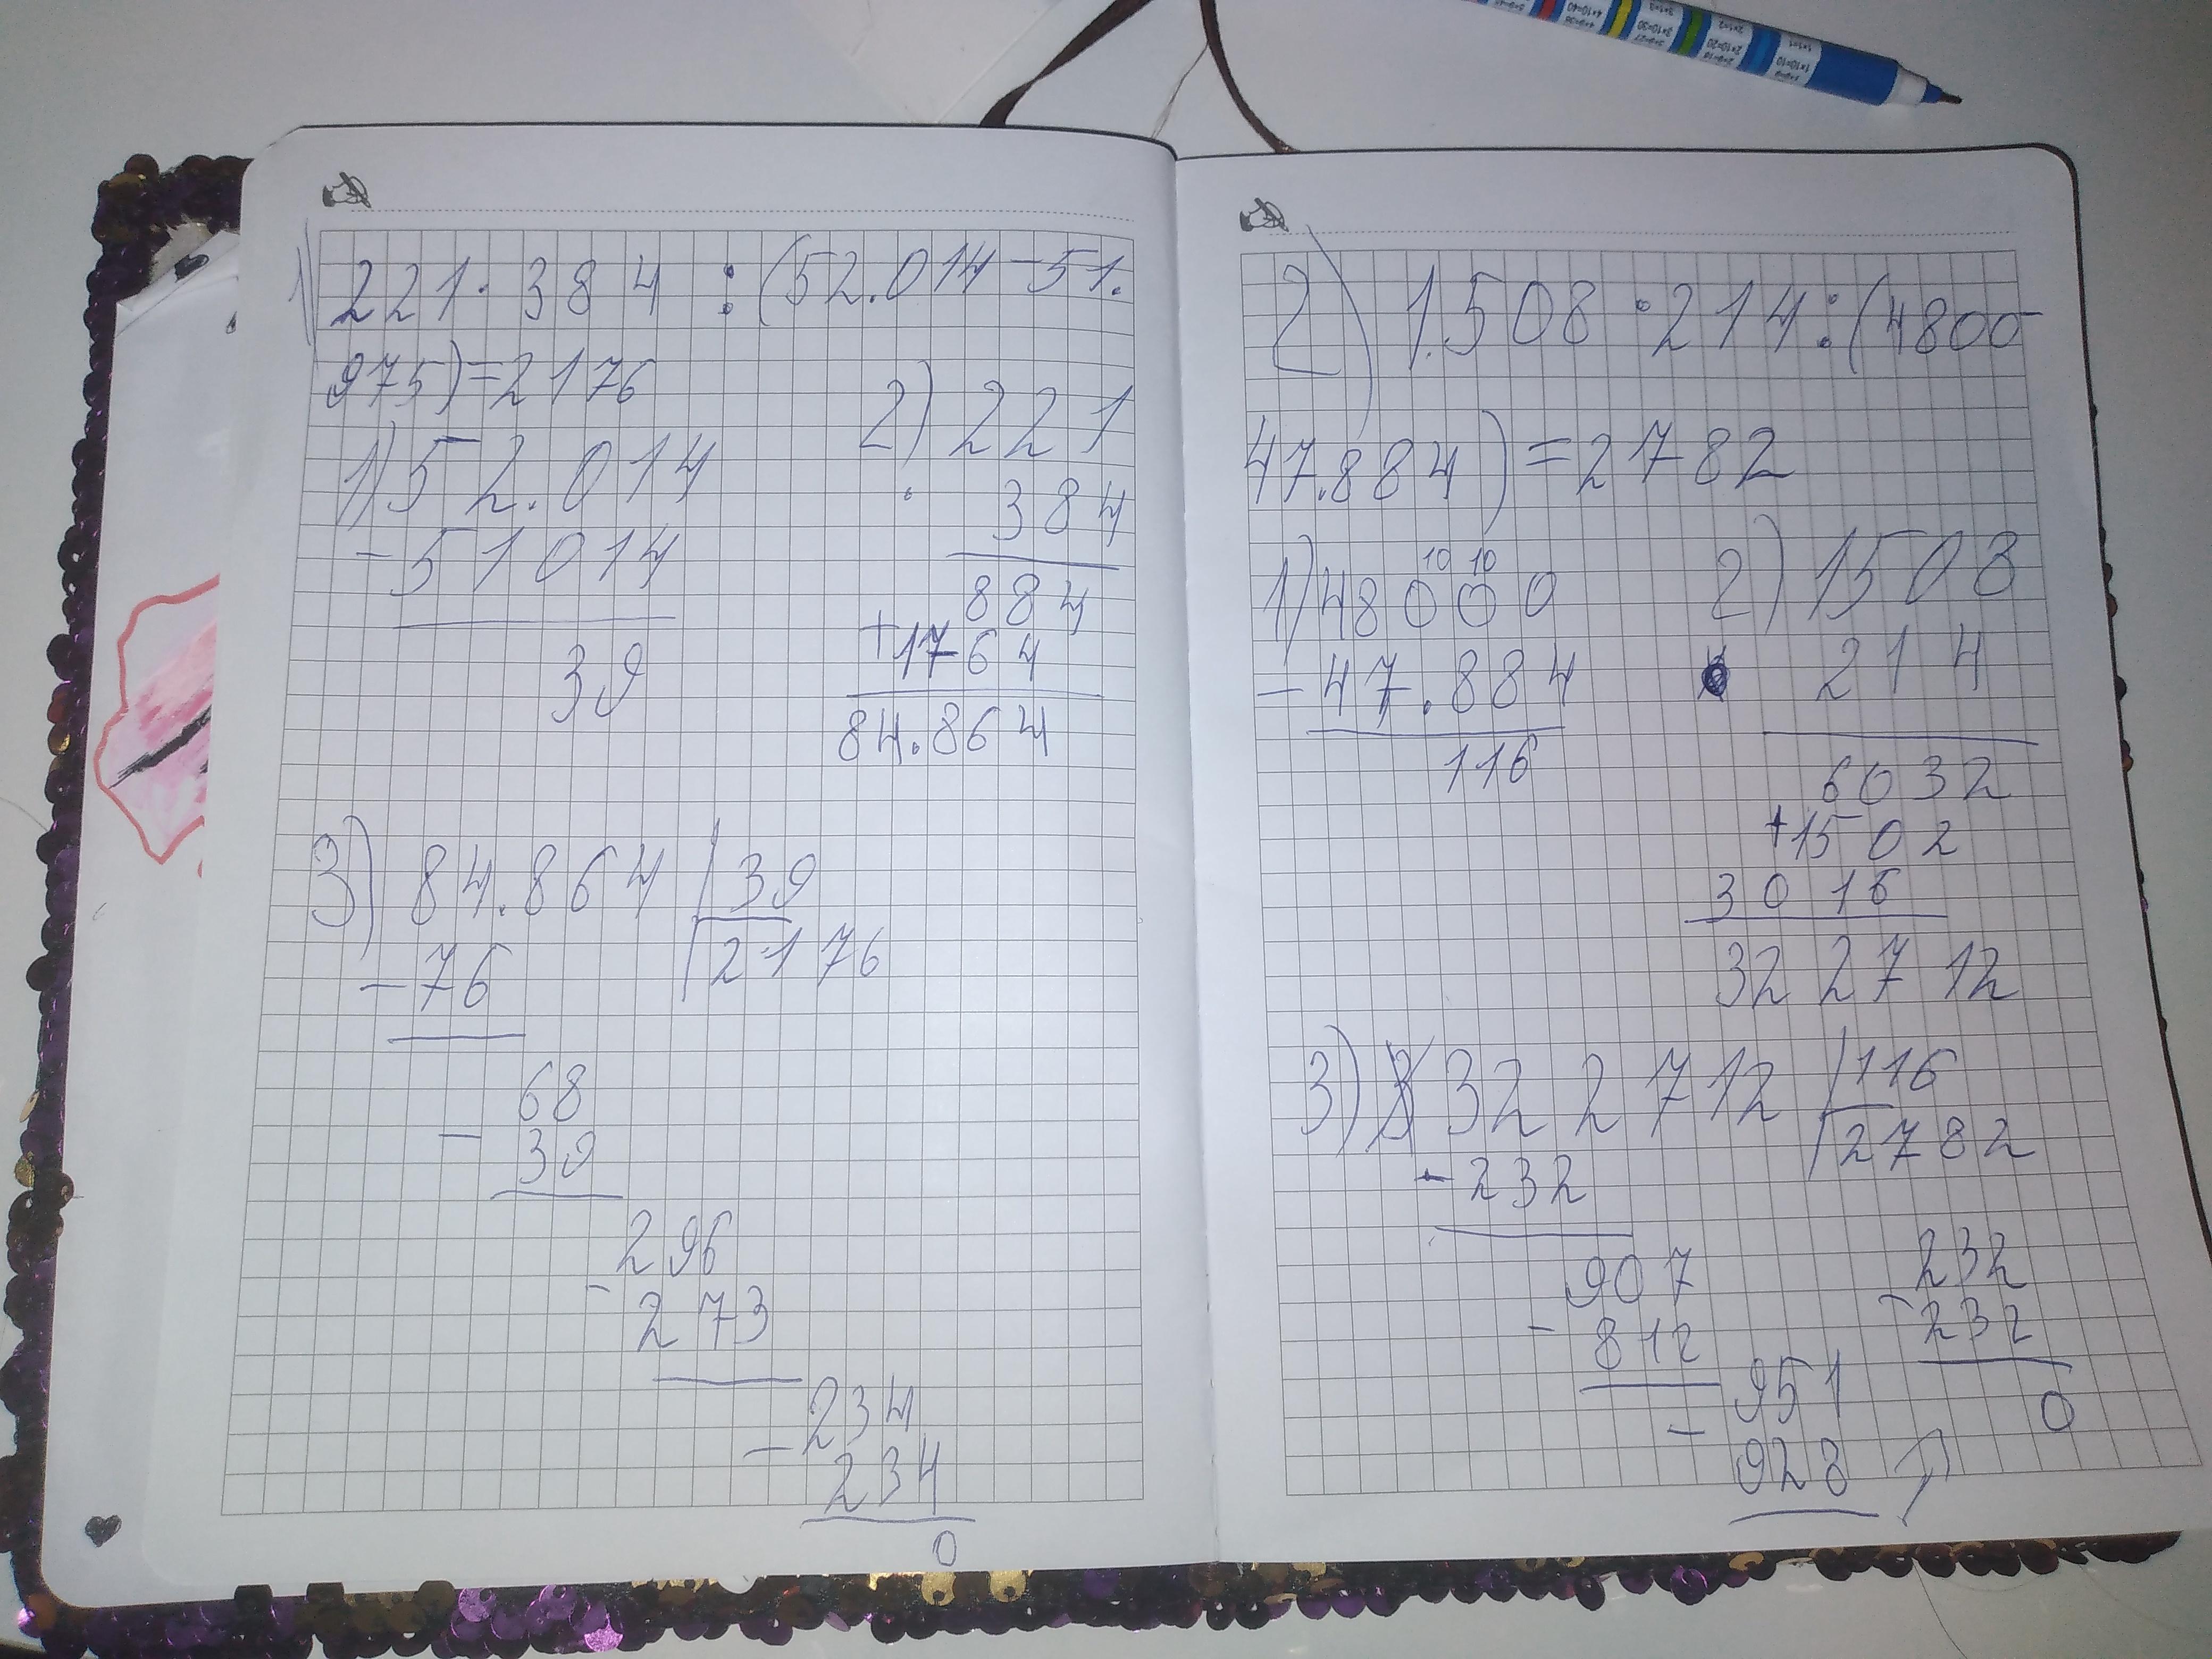 1) 221 · 384 : (52.014 - 51.
975) = 2176
1) 52.014
- 51014
39
2) 221
· 384
884
+ 1764
84.864
3) 84.864 | 39
- 76 | 2176
- 68
39
296
- 273
- 234
234
0
2) 1.508 · 214 : (4800-
47.884) = 2782
10 10
1) 48000
- 47.884
116
2) 1508
214
6032
+ 1502
3016
322712
3) 322712 | 116
- 232 | 2782
907
- 812
951
- 928
232
- 232
0